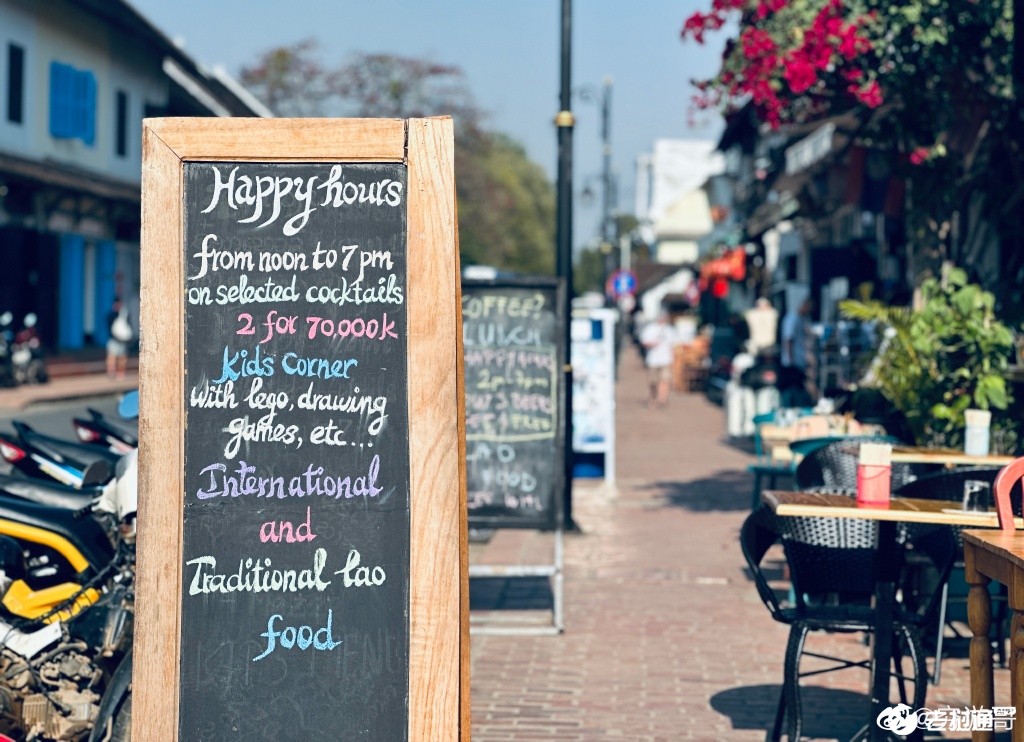 Happy hours
from noon to 7pm
on selected cocktails
2 for 70,000k
Kid's Corner
with lego, drawing
games, etc...
International
and
Traditional lao
food
COFFEE?
LUNCH
HAPPY HR
2pm-7pm
FOOD